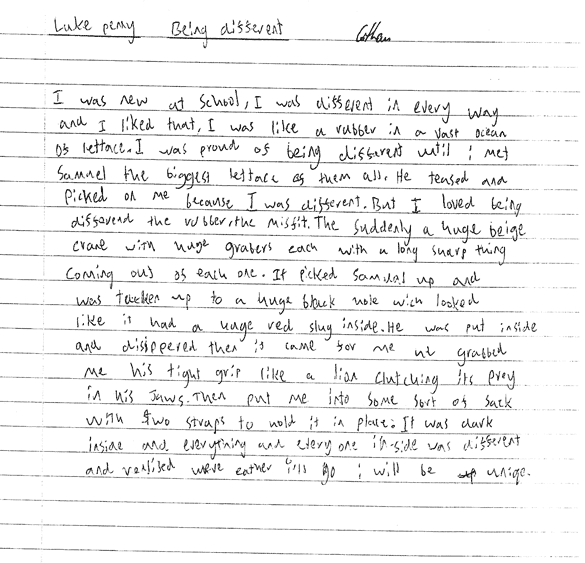 Luke perry Being different
I was new at School, I was different in every way
and I liked that, I was like a rubber in a vast ocean
of lettace. I was proud of being different until i met
Samuel the biggest lettace of them all. He teased and
Picked on me because I was different. But I loved being
difserend the rubber, the misfit. The suddenly a huge beige
crane with huge grabers each with a long sharp thing
Coming out of each one. It picked Samual up and
was taecken up to a huge black hole wich looked
like it had a huge red slug inside. He was put inside
and disippered then it came for me it grabbed
me his tight grip like a lion clutching its prey
in his Jaws. Then put me into some sort of sack
with two straps to hold it in place. It was dark
inside and everything and every one in-side was different
and realised were eather i'll go i will be uniqe.